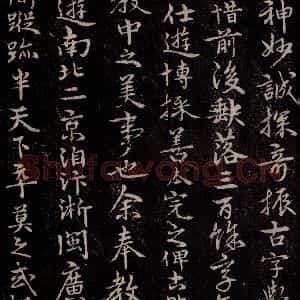 神妙誠探奇振古字
惜前後缺落二百餘字
仕遊博採善本完之俾古
教中之美事也余奉教
遊南北二京滇汴淅閩廣
蹤跡半天下卒莫之或
Shufawang.CN